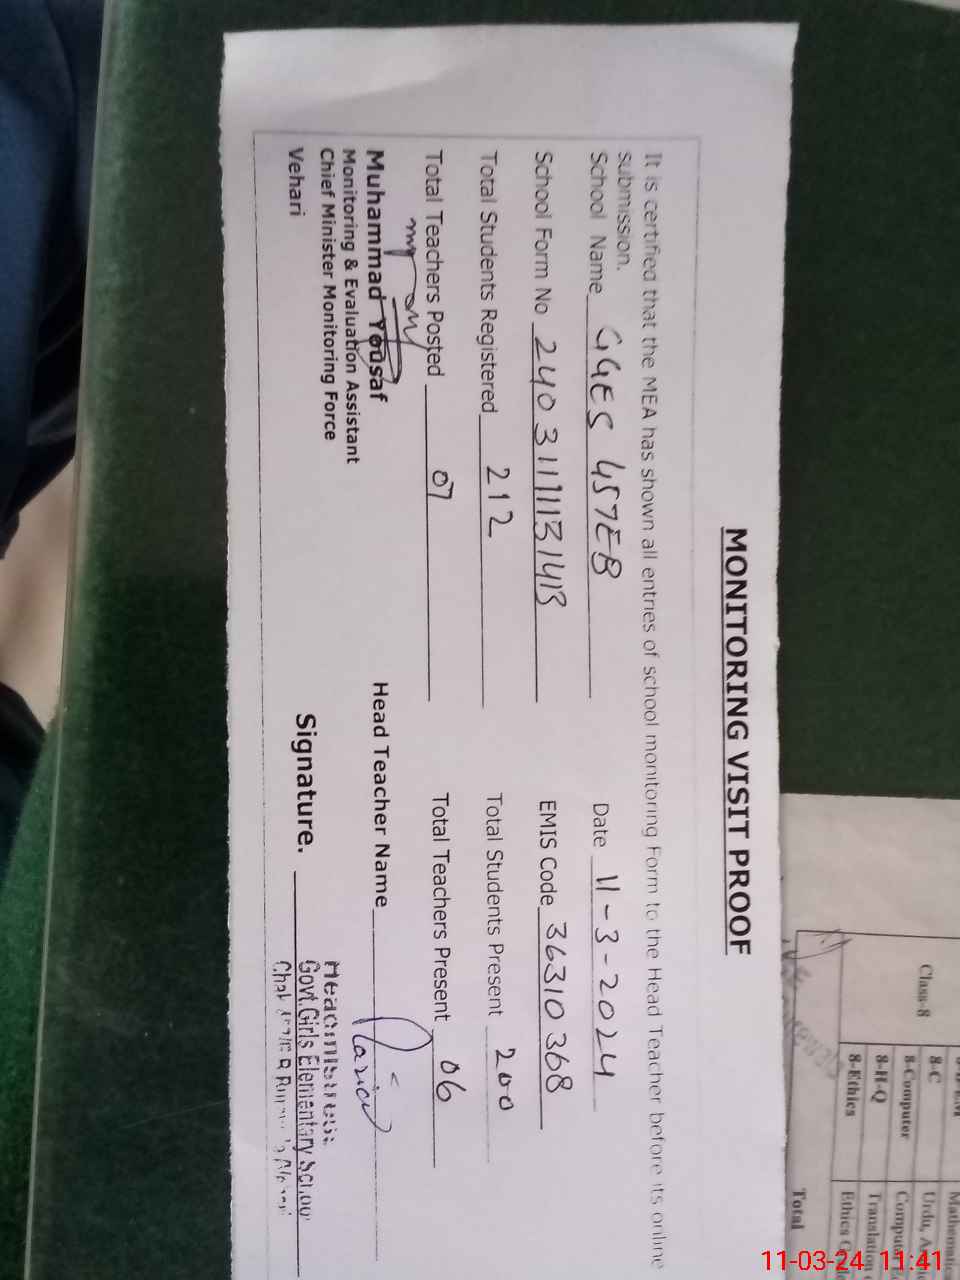 MONITORING VISIT PROOF
It is certified that the MEA has shown all entries of school monitoring Form to the Head Teacher before its online
submission.
School Name GGES 457EB Date 11-3-2024
School Form No EMIS Code 36310368
Total Students Registered 212 Total Students Present 200
Total Teachers Posted 07 Total Teachers Present 06
Muhammad Yousaf Head Teacher Name
Monitoring & Evaluation Assistant
Chief Minister Monitoring Force
Vehari
Signature.
Headmistress
Govt. Girls Elementary School
Chak
Class-8
8-C
8-Computer
8-H-Q
8-Ethics
Urdu,
Translation
Ethics
Total
11-03-24 11:41